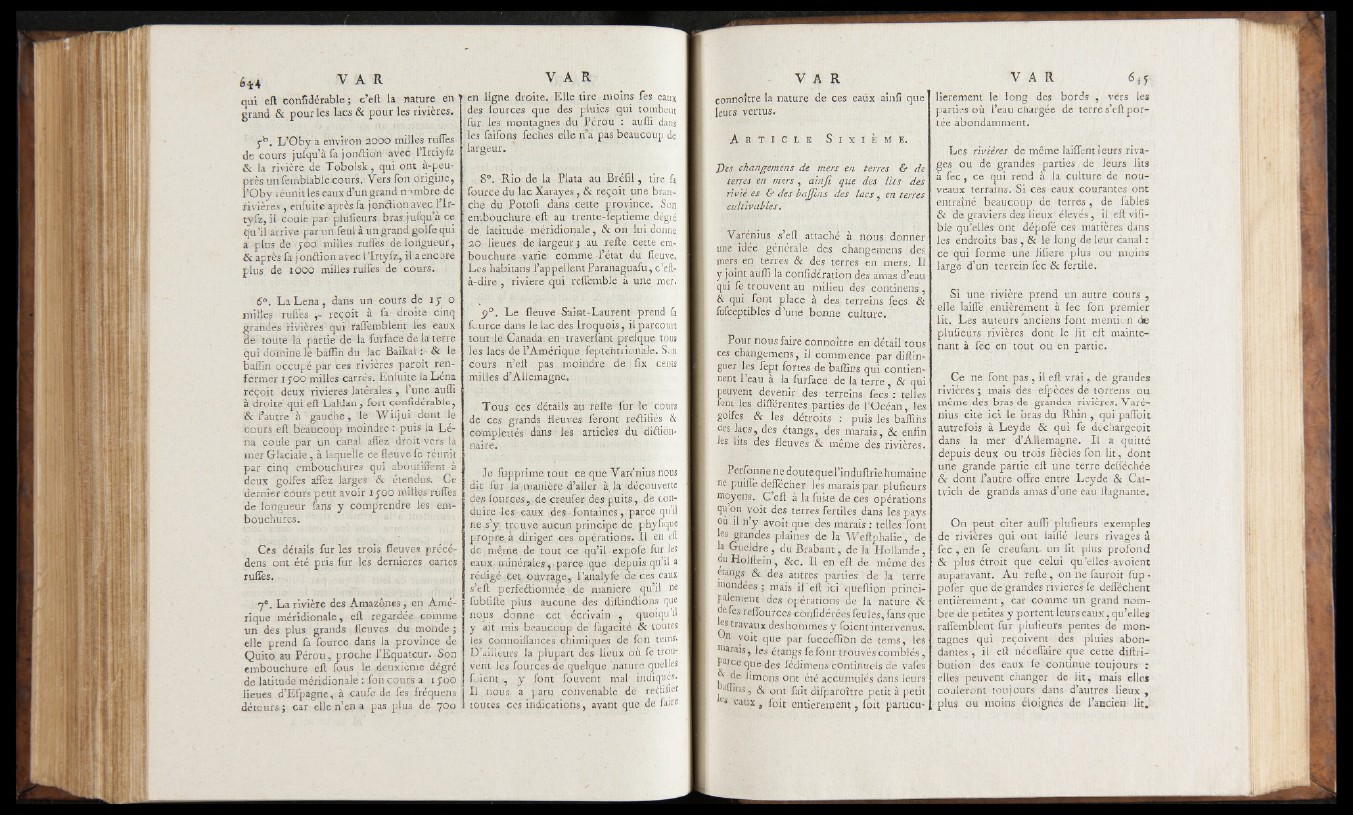 644 V A R
qui eſt conſidérable ; c’eſt la nature en
grand & pour les lacs & pour les rivières.
5°. L’Oby a environ 2000 milles ruſſes
de cours juſqu’à ſa jonction avec l’Irtyſz
& la rivière de Tobolsk, qui ont à-peu-
près un ſemblable cours. Vers ſon origine,
l’Oby réunit les eaux d’un grand nombre de
rivières, enſuite après ſa jonction avec l’Ir-
tyſz, il coule par pluſieurs bras juſqu’à ce
qu’il arrive par un ſeul à un grand golfe qui
a plus de 500 milles ruſſes de longueur,
& après ſa jonction avec l’Irtyſz, il a encore
plus de 1000 milles ruſſes de cours.
6°. La Lena, dans un cours de 15 0
milles ruſſes, reçoit à ſa droite cinq
grandes rivières qui raſſemblent les eaux
de toute la partie de la ſurface de la terre
qui domine le baſſin du lac Baikal : & le
baſſin occupé par ces rivières paroît ren-
fermer 1500 milles carrés. Enſuite la Léna
reçoit deux rivieres latérales, l’une auſſi
à droite qui eſt Laldan, fort conſidérable,
& l’autre à gauche, le Wiljui dont le
cours eſt beaucoup moindre : puis la Lé-
na coule par un canal aſſez droit vers la
mer Glaciale, à laquelle ce fleuve ſe réunit
par cinq embouchures qui aboutiſſent à
deux golfes aſſez larges & étendus. Ce
dernier cours peut avoir 1500 milles ruſſes
de longueur ſans y comprendre les em-
bouchures.
Ces détails ſur les trois fleuves précé-
dens ont été pris ſur les dernieres cartes
ruſſes.
7°. La rivière des Amazônes, en Amé-
rique méridionale, eſt regardée comme
un des plus grands fleuves du monde ;
elle prend ſa ſource dans la province de
Quito au Pérou, proche l’Equateur. Son
embouchure eſt ſous le deuxieme dégré
de latitude méridionale : ſon cours a 1500
lieues d’Eſpagne, à cauſe de ſes fréquens
détours ; car elle n’en a pas plus de 700
V A R
en ligne droite. Elle tire moins ſes eaux
des ſources que des pluies qui tombent
ſur les montagnes du Pérou : auſſi dans
les ſaiſons ſeches elle n’a pas beaucoup de
largeur.
8°. Rio de la Plata au Bréſil, tire ſa
ſource du lac Xarayes, & reçoit une bran-
che du Potoſi dans cette province. Son
embouchure eſt au trente-ſeptieme dégré
de latitude méridionale, & on lui donne
20 lieues de largeur ; au reſte cette em-
bouchure varie comme l’état du fleuve.
Les habitans l’appellent Paranaguaſu, c’eſt-
à-dire, riviere qui reſſemble à une mer.
9°. Le fleuve Saint-Laurent prend ſa
ſource dans le lac des Iroquois, il parcourt
tout le Canada en traverſant preſque tous
les lacs de l’Amérique ſeptentrionale. Son
cours n’eſt pas moindre de ſix cents
milles d’Allemagne.
Tous ces détails au reſte ſur le cours
de ces grands fleuves ſeront rectifiés &
complettés dans les articles du diction-
naire.
Je ſupprime tout ce que Varénius nous
dit ſur la maniére d’aller à la découverte
des ſources, de creuſer des puits, de con-
duire les eaux des fontaines, parce qu’il
ne s’y trouve aucun principe de phyſique
propre à diriger ces opérations. Il en eſt
de même de tout ce qu’il expoſe ſur les
eaux minérales, parce que depuis qu’il a
rédigé cet ouvrage, l’analyſe de ces eaux
s’eſt perfectionnée de maniere qu’il ne
ſubſiſte plus aucune des diſtinctions que
nous donne cet écrivain, quoiqu’il
y ait mis beaucoup de ſagacité & toutes
les connoiſſances chimiques de ſon tems.
D’ailleurs la plupart des lieux où ſe trou-
vent les ſources de quelque nature quelles
ſoient, y ſont ſouvent mal indiqués.
Il nous a paru convenable de rectifier
toutes ces indications, avant que de faire
V A R
connoître la nature de ces eaux ainſi que
leurs vertus.
A R T I C L E S I X I È M E.
Des changemens de mers en terres & de
terres en mers, ainſi que des lits des
rivie es & des baſſins des lacs, en terres
cultivables.
Varénius s’eſt attaché à nous donner
une idée générale des changemens des
mers en terres & des terres en mers. Il
y joint auſſi la conſidération des amas d’eau
qui ſe trouvent au milieu des continens,
& qui font place à des terreins ſecs &
ſuſceptibles d’une bonne culture.
Pour nous faire connoître en détail tous
ces changemens, il commence par diſtin-
guer les ſept ſortes de baſſins qui contien-
nent l’eau à la ſurface de la terre, & qui
peuvent devenir des terreins ſecs : telles
ſont les différentes parties de l’Océan, les
golfes & les détroits : puis les baſſins
des lacs, des étangs, des marais, & enfin
les lits des fleuves & même des rivières.
Perſonne ne doute que l’induſtrie humaine
ne puiſſe deſſécher les marais par pluſieurs
moyens. C’eſt à la ſuite de ces opérations
qu’on voit des terres fertiles dans les pays
où il n’y avoit que des marais : telles ſont
les grandes plaines de la Weſtphalie, de
la Gueldre, du Brabant, de la Hollande,
du Holſtein, &c. Il en eſt de même des
étangs & des autres parties de la terre
inondées ; mais il eſt ici queſtion princi-
palement des opérations de la nature &
de ſes reſſources conſidérées ſeules, ſans que
les travaux des hommes y ſoient intervenus.
On voit que par ſucceſſion de tems, les
marais, les étangs ſe ſont trouvés comblés,
parce que des ſédimens continuels de vaſes
& de limons ont été accumulés dans leurs
baſſins, & ont fait diſparoître petit à petit
les eaux, ſoit entierement, ſoit particu-
V A R 645
lierement le long des bords, vers les
parties où l’eau chargée de terre s’eſt por-
tée abondamment.
Les rivières de même laiſſent leurs riva-
ges ou de grandes parties de leurs lits
à ſec, ce qui rend à la culture de nou-
veaux terrains. Si ces eaux courantes ont
entraîné beaucoup de terres, de ſables
& de graviers des lieux élevés, il eſt viſi-
ble qu’elles ont dépoſé ces matières dans
les endroits bas, & le long de leur canal :
ce qui forme une liſiere plus ou moins
large d’un terrein ſec & fertile.
Si une rivière prend un autre cours,
elle laiſſe entièrement à ſec ſon premier
lit. Les auteurs anciens font mention de
pluſieurs rivières dont le lit eſt mainte-
nant à ſec en tout ou en partie.
Ce ne ſont pas, il eſt vrai, de grandes
rivières ; mais des eſpèces de torrens ou
même des bras de grandes rivières. Varé-
nius cite ici le bras du Rhin, qui paſſoit
autrefois à Leyde & qui ſe déchargeoit
dans la mer d’Allemagne. Il a quitté
depuis deux ou trois ſiècles ſon lit, dont
une grande partie eſt une terre deſſéchée
& dont l’autre offre entre Leyde & Cat-
tvich de grands amas d’une eau ſtagnante.
On peut citer auſſi pluſieurs exemples
de rivières qui ont laiſſé leurs rivages à
ſec, en ſe creuſant un lit plus profond
& plus étroit que celui qu’elles avoient
auparavant. Au reſte, on ne ſauroit ſup-
poſer que de grandes rivieres ſe deſſèchent
entièrement, car comme un grand nom-
bre de petites y portent leurs eaux, qu’elles
raſſemblent ſur pluſieurs pentes de mon-
tagnes qui reçoivent des pluies abon-
dantes, il eſt néceſſaire que cette diſtri-
bution des eaux ſe continue toujours :
elles peuvent changer de lit, mais elles
couleront toujours dans d’autres lieux,
plus ou moins éloignés de l’ancien lit.